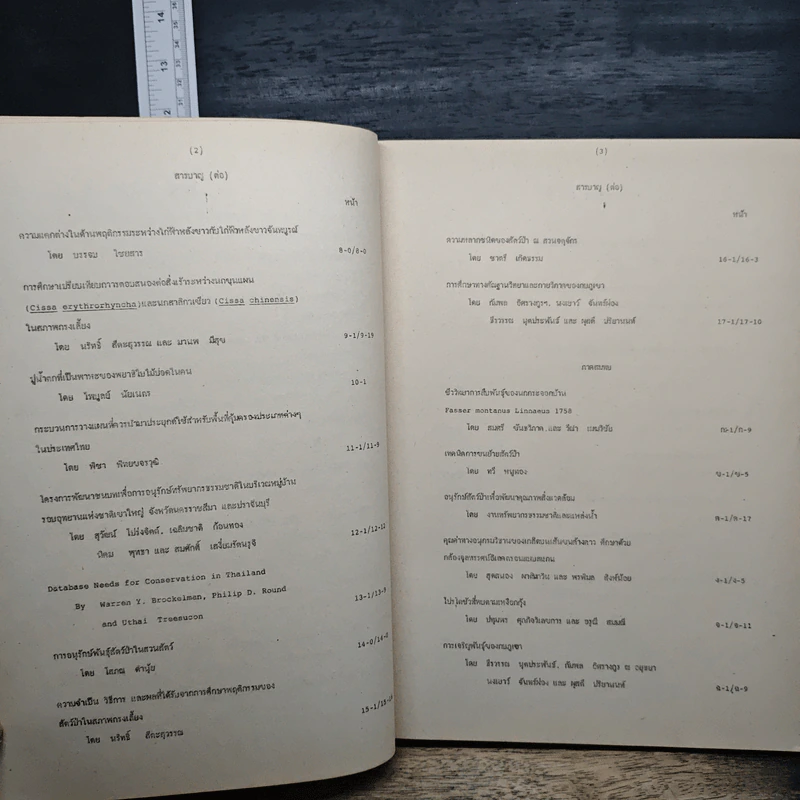 (2)
สารบาญ (ต่อ)
หน้า
ความแตกต่างในด้านพฤติกรรมระหว่างไก่ฟ้าหลังขาวกับไก่ฟ้าหลังขาวจันทบูรณ์
โดย บรรจบ ไชยสาร 8-0/8-0
การศึกษาเปรียบเทียบการตอบสนองต่อสิ่งเร้าระหว่างนกขุนแผน
(Cissa erythrorhyncha)และนกสาลิกาเขียว (Cissa chinensis)
ในสภาพกรงเลี้ยง
โดย นริทธิ์ สีตะสุวรรณ และ มานพ มีสุข 9-1/9-19
ปูน้ำตกที่เป็นพาหะของพยาธิใบไม้ปอดในคน
โดย ไพบูลย์ นัยเนตร 10-1
กระบวนการวางแผนที่ควรนำมาประยุกต์ใช้สำหรับพื้นที่คุ้มครองประเภทต่างๆ
ในประเทศไทย
โดย พิชา พิทยขจรวุฒิ 11-1/11-9
โครงการพัฒนาชนบทเพื่อการอนุรักษ์ทรัพยากรธรรมชาติในบริเวณหมู่บ้าน
รอบอุทยานแห่งชาติเขาใหญ่ จังหวัดนครราชสีมา และปราจีนบุรี
โดย สุวัฒน์ โปร่งจิตต์, เฉลิมชาติ ก้อนทอง
นิคม พุทธา และ สมศักดิ์ เสงี่ยมรัตนรุจี 12-1/12-12
Database Needs for Conservation in Thailand
By Warren Y. Brockelman, Philip D. Round
and Uthai Treesucon 13-1/13-9
การอนุรักษ์พันธุ์สัตว์ป่าในสวนสัตว์
โดย โสภณ ดำนุ้ย 14-0/14-0
ความจำเป็น วิธีการ และผลที่ได้รับจากการศึกษาพฤติกรรมของ
สัตว์ป่าในสภาพกรงเลี้ยง
โดย นริทธิ์ สีตะสุวรรณ
(3)
สารบาญ (ต่อ)
หน้า
ความหลากชนิดของสัตว์ป่า ณ สวนจตุจักร
โดย ชาตรี เกิดธรรม 16-1/16-3
การศึกษาทางสัณฐานวิทยาและกายวิภาคของกบภูเขา
โดย กัมพล อิศรางกูรฯ, นงเยาว์ จันทร์ผ่อง
ธีรวรรณ นุตประพันธ์ และ ผุสตี ปริยานนท์ 17-1/17-10
ภาคผนวก
ชีววิทยาการสืบพันธุ์ของนกกระจอกบ้าน
Passer montanus Linnaeus 1758
โดย สมศรี และ วีณา เมฆวิชัย ก-1/ก-9
เทคนิคการขนย้ายสัตว์ป่า
โดย ทวี หนูทอง ข-1/ข-5
อนุรักษ์สัตว์ป่าเพื่อพัฒนาคุณภาพสิ่งแวดล้อม
โดย งานทรัพยากรธรรมชาติและแหล่งน้ำ
คุณค่าทางอนุกรมวิธานของเกล็ดบนเส้นขนค้างคาว ศึกษาด้วย
กล้องจุลทรรศน์อิเลคตรอนแบบสแกน
โดย สุดสนอง ผาตินาวิน และ พรพิมล
ไบรุโอซัวสี่พบตามเหงือกกุ้ง
โดย ปฐมพร และ จรูณี สมมณี จ-1/จ-11
การเจริญพันธุ์ของกบภูเขา
โดย ธีรวรรณ นุตประพันธ์, กัมพล อิศรางกูร ณ อยุธยา
นงเยาว์ จันทร์ผ่อง และ ผุสตี ปริยานนท์ ฉ-1/ฉ-9